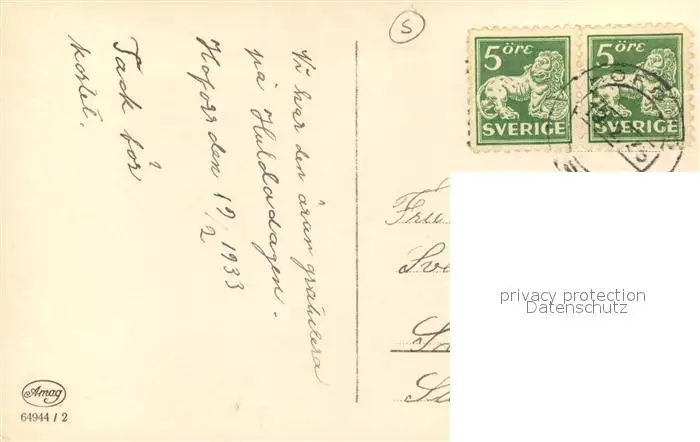 S
5 ÖRE
SVERIGE
5 ÖRE
SVERIGE
Vi har den äran gratulera
på Huldadagen.
Hofors den 19/2 1933
Tack för
kortet.
Fru
privacy protection
Datenschutz
Amag
64944 / 2